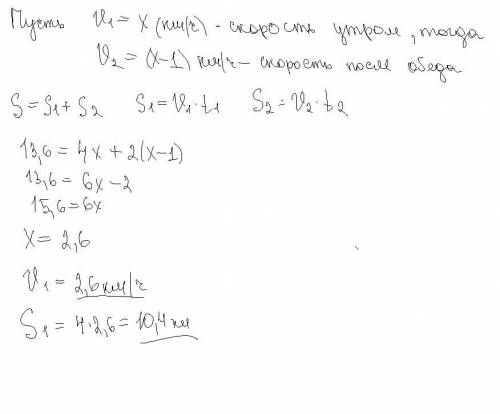 Пусть V₁ = x (км/ч) - скорость утром, тогда
V₂ = (x-1) км/ч - скорость после обеда
S = S₁ + S₂   S₁ = V₁·t₁   S₂ = V₂·t₂
13,6 = 4x + 2(x-1)
13,6 = 6x - 2
15,6 = 6x
x = 2,6
V₁ = 2,6 км/ч
S₁ = 4·2,6 = 10,4 км